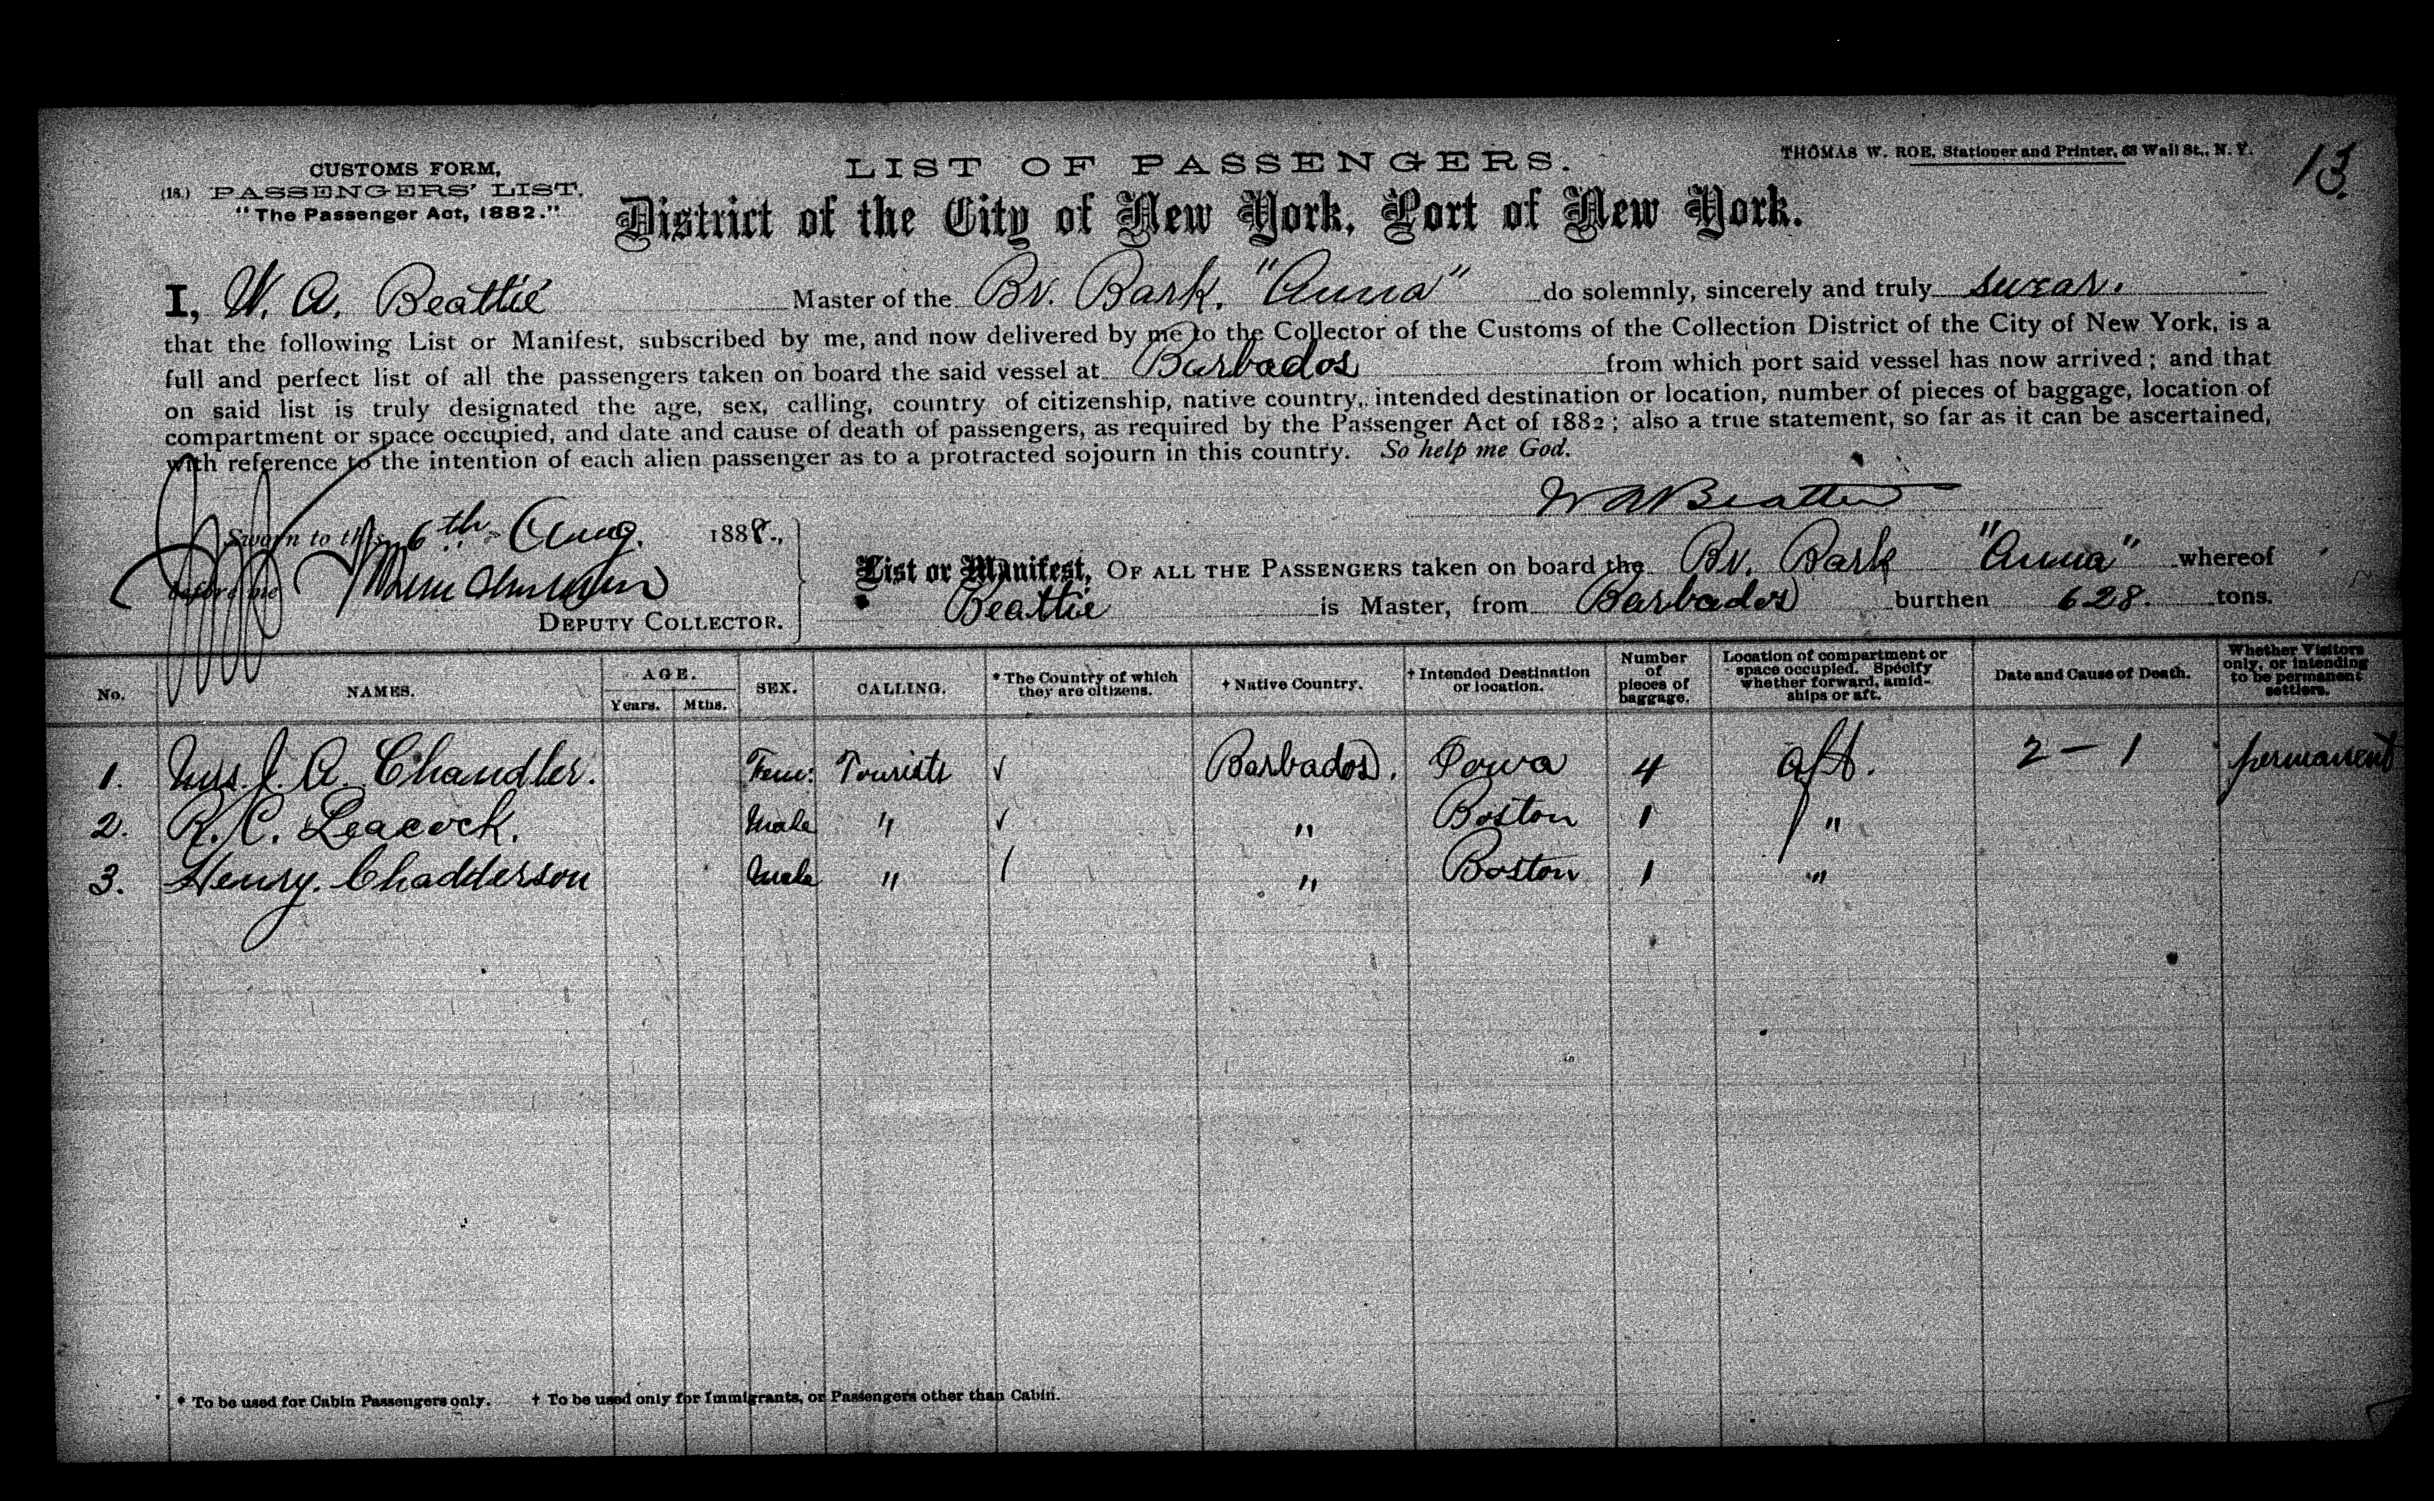 CUSTOMS FORM,
(18.) PASSENGERS' LIST.
"The Passenger Act, 1882."
LIST OF PASSENGERS.
THOMAS W. ROE, Stationer and Printer, 63 Wall St., N. Y.
13.
District of the City of New York, Port of New York.
I, W. A. Beattie Master of the Br. Bark. "Anna" do solemnly, sincerely and truly swear.
that the following List or Manifest, subscribed by me, and now delivered by me to the Collector of the Customs of the Collection District of the City of New York, is a
full and perfect list of all the passengers taken on board the said vessel at Barbados from which port said vessel has now arrived; and that
on said list is truly designated the age, sex, calling, country of citizenship, native country, intended destination or location, number of pieces of baggage, location of
compartment or space occupied, and date and cause of death of passengers, as required by the Passenger Act of 1882; also a true statement, so far as it can be ascertained,
with reference to the intention of each alien passenger as to a protracted sojourn in this country. So help me God.
W A Beattie
Sworn to this 6th Aug. 1888.,
before me
DEPUTY COLLECTOR.
List or Manifest, OF ALL THE PASSENGERS taken on board the Br. Bark "Anna" whereof
Beattie is Master, from Barbados burthen 628. tons.
No. NAMES. AGE. Years. Mths. SEX. CALLING. * The Country of which they are citizens. † Native Country. † Intended Destination or location. Number of pieces of baggage. Location of compartment or space occupied. Specify whether forward, amidships or aft. Date and Cause of Death. Whether Visitors only, or intending to be permanent settlers.
1. Mrs. J. A. Chandler. Fem: Tourists √ Barbados. Iowa 4 aft. 2 – 1 permanent
2. R. C. Leacock. Male " √ " Boston 1 "
3. Henry. Chadderson Male " / " Boston 1 "
* To be used for Cabin Passengers only. † To be used only for Immigrants, or Passengers other than Cabin.